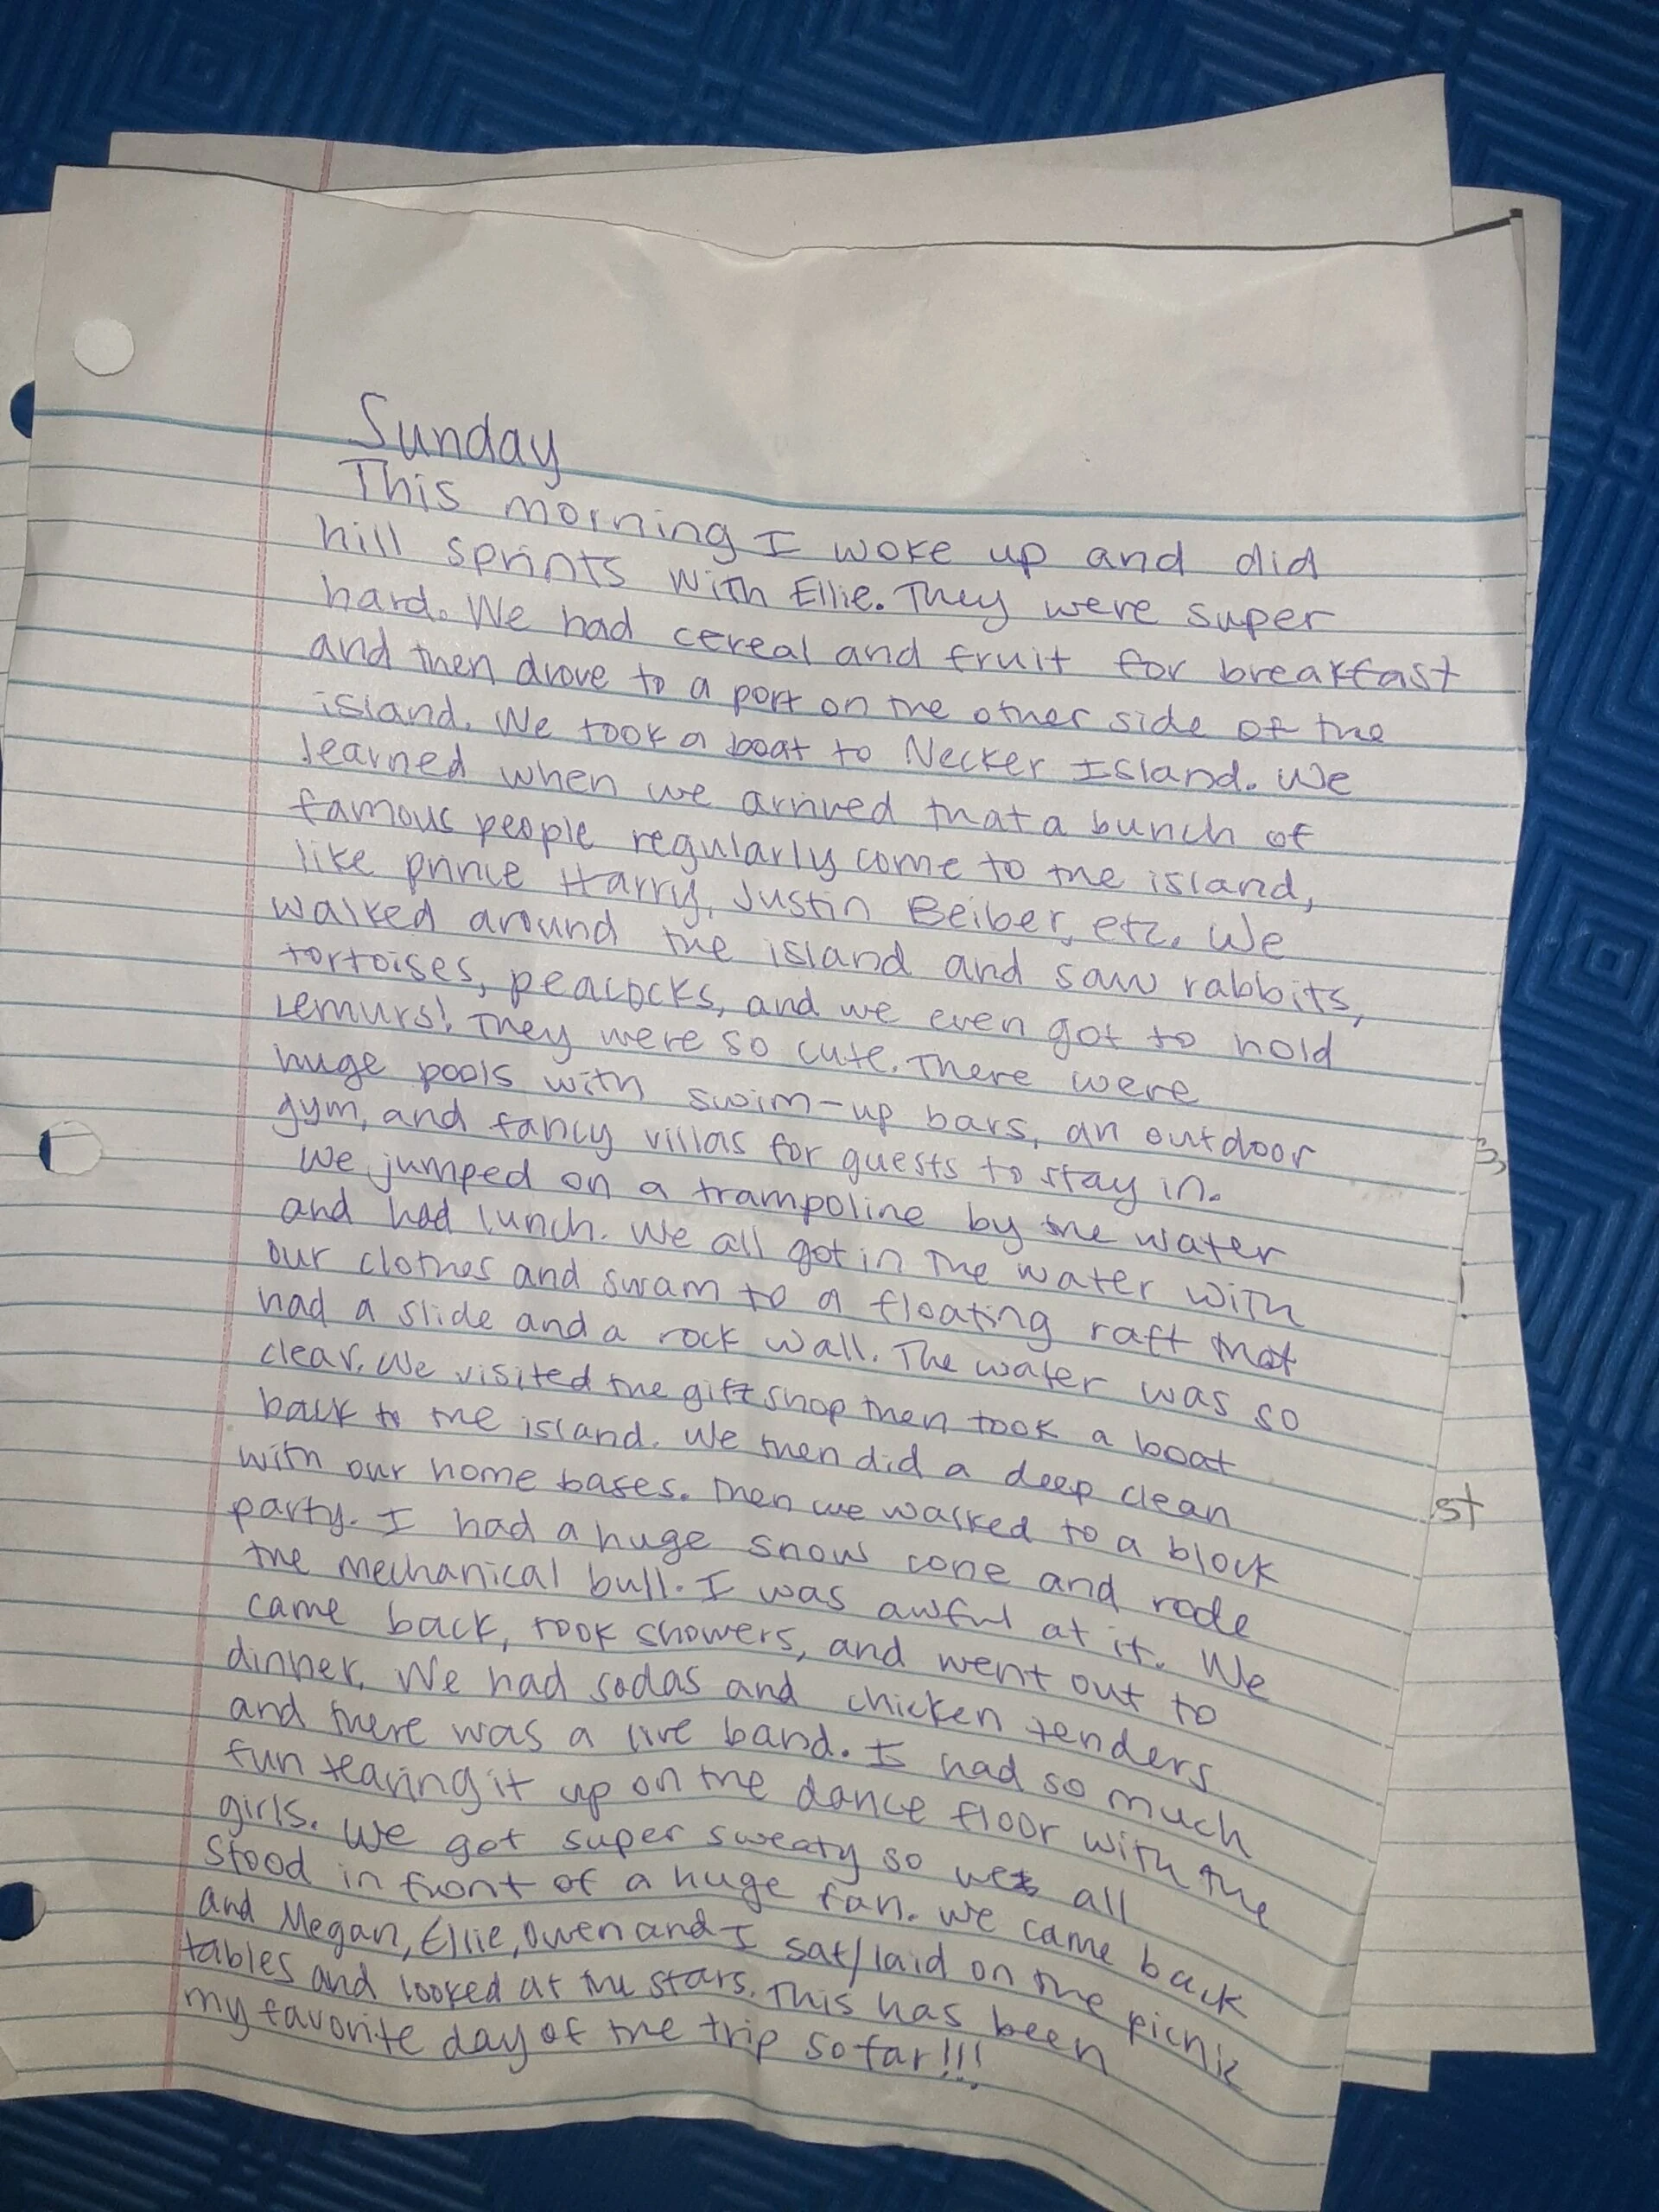 Sunday
This morning I woke up and did
hill sprints with Ellie. They were super
hard. We had cereal and fruit for breakfast
and then drove to a port on the other side of the
island. We took a boat to Necker Island. We
learned when we arrived that a bunch of
famous people regularly come to the island,
like prince Harry, Justin Beiber, etc. We
walked around the island and saw rabbits,
tortoises, peacocks, and we even got to hold
Lemurs! They were so cute. There were
huge pools with swim-up bars, an outdoor
gym, and fancy villas for guests to stay in.
We jumped on a trampoline by the water
and had lunch. We all got in the water with
our clothes and swam to a floating raft that
had a slide and a rock wall. The water was so
clear. We visited the gift shop then took a boat
back to the island. We then did a deep clean
with our home bases. Then we walked to a block
party. I had a huge snow cone and rode
the mechanical bull. I was awful at it. We
came back, took showers, and went out to
dinner. We had sodas and chicken tenders
and there was a live band. I had so much
fun tearing it up on the dance floor with the
girls. We got super sweaty so we all
stood in front of a huge fan. We came back
and Megan, Ellie, Owen and I sat/laid on the picnic
tables and looked at the stars. This has been
my favorite day of the trip so far!!!
3,
st